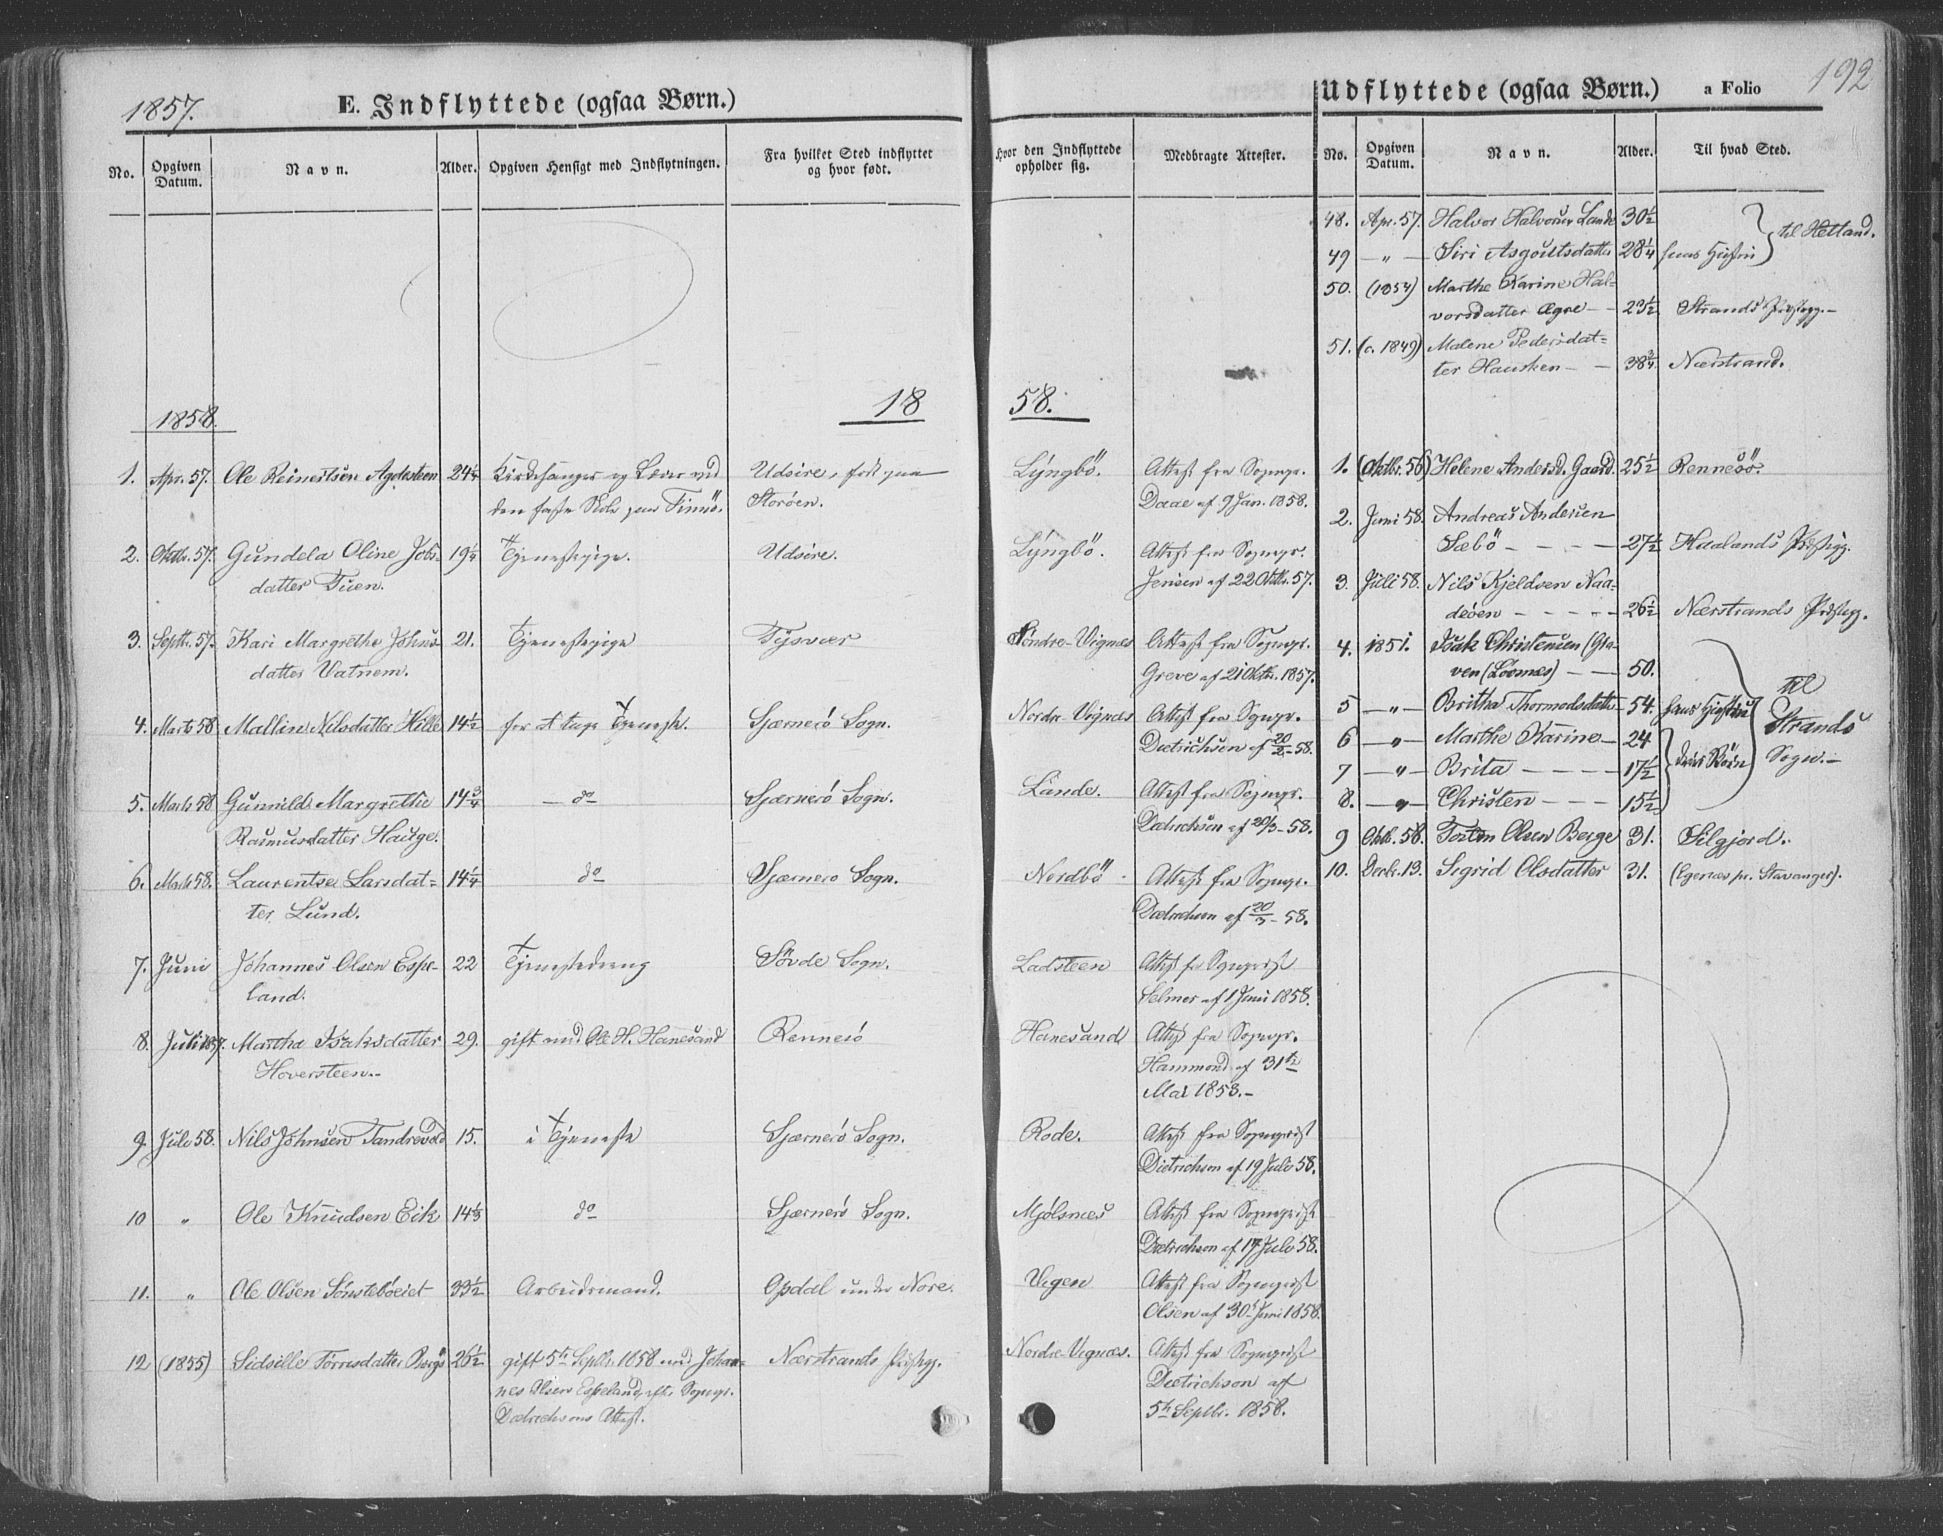 1857.
E. Indflyttede (ogsaa Børn.)
No.
Opgiven Datum.
Navn.
Alder.
Opgiven Hensigt med Indflytningen.
Fra hvilket Sted indflyttet og hvor født.
Hvor den Indflyttede opholder sig.
Medbragte Attester.
1858.
18 58.
1. Apr. 57. Ole Reinertsen Agdesteen 24¼ Kirkesanger og Lærer ved Udsire, født paa Lyngbö. Attest fra Sognepr.
den faste Skole paa Finnö. Storöen. Daae af 9 Jan. 1858.
2. Oktbr. 57. Gundela Oline Jobs- 19¼ Tjenestepige. Udsire. Lyngbö. Attest fra Sognepr.
datter Tuen. Jensen af 22 Oktbr. 57.
3. Septbr. 57. Kari Margrethe Johns- 21. Tjenestepige Tysvær Söndre-Vignæs Attest fra Sognepr.
datter Vatnem. Greve af 21 Oktbr. 1857.
4. Marts 58 Mallin Nilsdatter Hille 14½ for at tage Tjeneste. Sjærnerö Sogn. Nordre-Vignæs Attest fra Sognepr.
Dietrichsen af 20/2 - 58.
5. Marts 58 Gunnild Margrethe 14¾ do Sjærnerö Sogn. Lande. Attest fra Sognepr.
Rasmusdatter Hauge. Dietrichson af 20/3 - 58.
6. Marts 58. Laurentse Larsdat- 14¼ do Sjærnerö Sogn. Nordbö Attest fra Sognepr.
ter Lund. Dietrichson af 20/3 - 58.
7. Juni Johannes Olsen Espe- 22 Tjenestedreng Sövde Sogn. Ladsteen Attest fra Sogneprest
land. Selmer af 1 Juni 1858.
8. Juli Martha Isaksdatter 29. gift med Ole H. Hanesand Rennesö Hanesand Attest fra Sognepr.
Hoversteen. Hammond af 31te
Mai 1858.
9. Juli 58. Nils Johnsen Tandrevold 15. i Tjeneste Sjærnerö Sogn. Rode. Attest fra Sogneprest
Dietrichson af 19 Juli 58.
10 " Ole Knudsen Eik 14⅓ do Sjærnerö Sogn. Mjölsnæs Attest fra Sogneprest
Dietrichson af 17 Juli 58.
11. " Ole Olsen Sönsteböeiet 33½ Arbeidsmand. Opdal under Nore. Vigen Attest fra Sogneprest
Olsen af 30 Juni 1858.
12 (1855) Sidsille Torresdatter Bergö 26½ gift 5te Septbr. 1858 med Johan- Nærstrands Præstegj. Nordre-Vignæs. Attest fra Sogneprest
nes Olsen Espeland efter Sognepr. Dietrichson af
Dietrichsons Attest. 5te Septbr. 1858.
Udflyttede (ogsaa Børn.)
a Folio
192
No.
Opgiven Datum.
Navn.
Alder.
Til hvad Sted.
48. Apr. 57. Halvor Halvorsen Lande 30½ til Hetland.
49 " Siri Asgoutsdatter 28¼ hans Hustru
50. (1854) Marthe Karine Hal-
vorsdatter Ægre 23½ Strands Præstegj.
51. (c. 1849) Malene Pedersdat-
ter Hausken 38¾ Nærstrand.
1. (Oktbr. 56) Helene Andersd. Gaard. 25½ Rennesö.
2. Juni 58. Andreas Andersen
Sæbö 27½ Haalands Præstegj.
3. Juli 58. Nils Kjeldsen Naa-
deöen 26½ Nærstrands Præstegj.
4. 1851. Isak Christensen (Gra-
ven (Loomes) 50. til
5 " Britha Thormodsdatter 54. hans Hustru Strands
6 " Marthe Karine 24 deres Börn Sogn.
7 " Brita 17½
8. " Christen 15½
9 Oktb. 58. Torsten Olsen Berge 31. Silgjord.
10. Decbr. 13. Sigrid Olsdatter 31. (Egenæs pr. Stavanger).